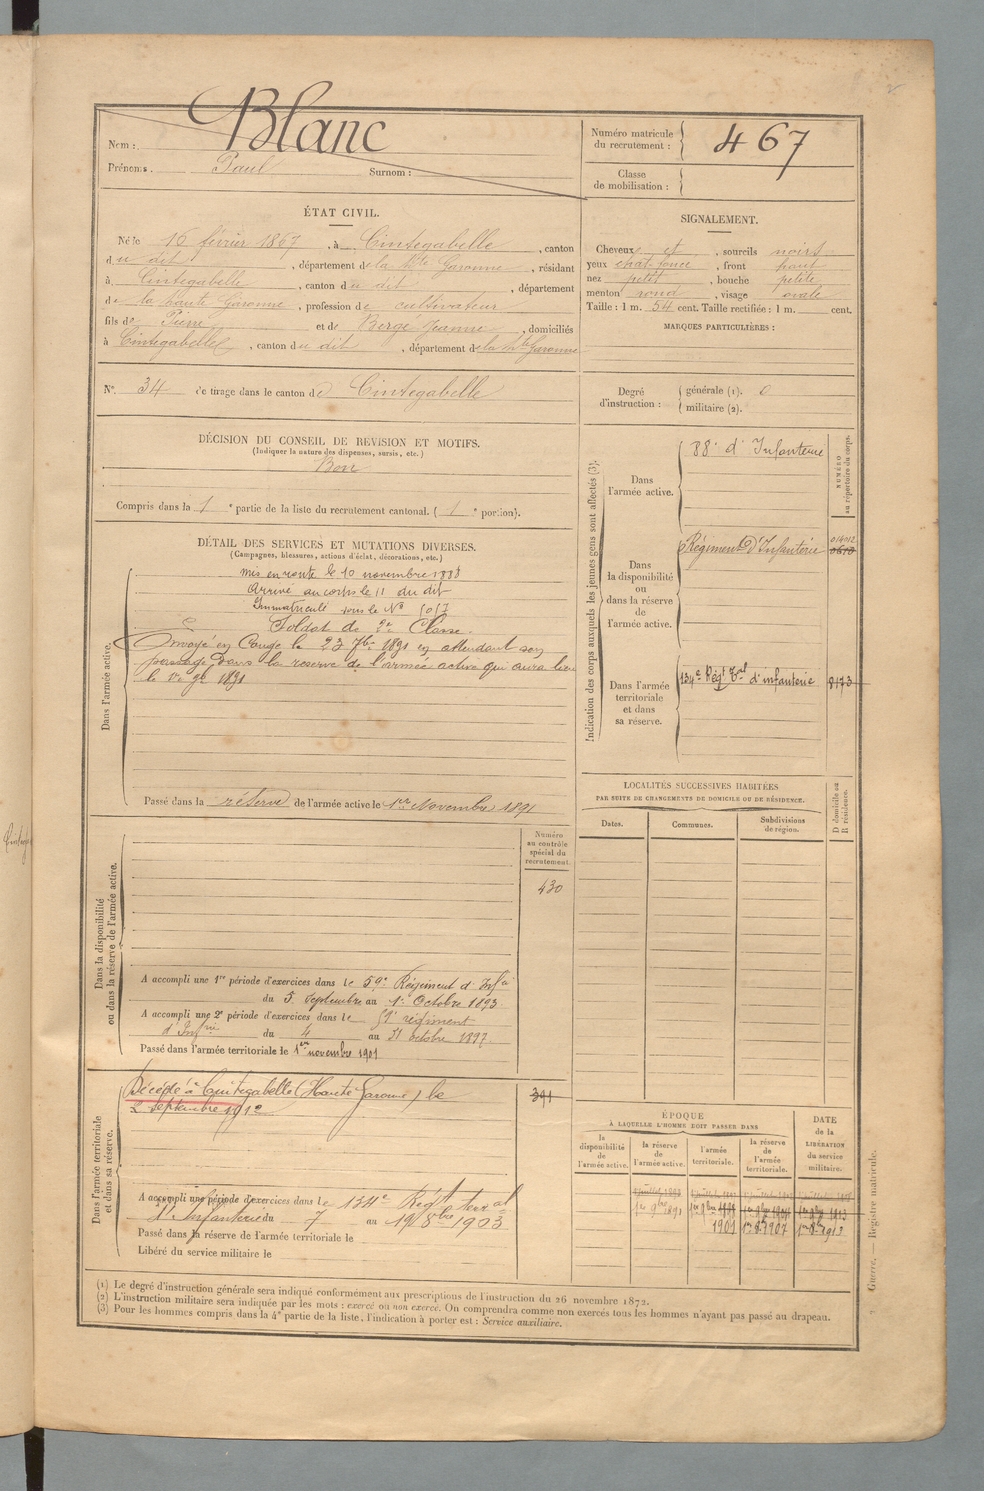 Nom : Blanc
Prénoms. Paul Surnom :
Numéro matricule du recrutement : 467
Classe de mobilisation :
ÉTAT CIVIL.
Né le 16 février 1867, à Cintegabelle, canton
du dit, département de la Hte Garonne, résidant
à Cintegabelle, canton du dit, département
de la haute Garonne, profession de cultivateur
fils de Pierre et de Berge Jeanne, domiciliés
à Cintegabelle, canton du dit, département de la Hte Garonne
SIGNALEMENT.
Cheveux et, sourcils noirs
yeux chat. foncé, front haut
nez petit, bouche petite
menton rond, visage ovale
Taille : 1 m. 54 cent. Taille rectifiée : 1 m. cent.
MARQUES PARTICULIÈRES :
N° 34 de tirage dans le canton de Cintegabelle
Degré d'instruction : générale (1). 0
militaire (2).
DÉCISION DU CONSEIL DE REVISION ET MOTIFS.
(Indiquer la nature des dispenses, sursis, etc.)
Bon
Compris dans la 1e partie de la liste du recrutement cantonal. (1e portion).
DÉTAIL DES SERVICES ET MUTATIONS DIVERSES.
(Campagnes, blessures, actions d'éclat, décorations, etc.)
Dans l'armée active.
mis en route le 10 novembre 1888
Arrivé au corps le 11 du dit
Immatriculé sous le N°
Soldat de 2e Classe.
Envoyé en Congé le 23 7bre 1891 en attendant son
passage dans la réserve de l'armée active qui aura lieu
le 1er 9bre 1891
Passé dans la réserve de l'armée active le 1er Novembre 1891
Indication des corps auxquels les jeunes gens sont affectés (3).
NUMÉRO au répertoire du corps.
Dans l'armée active.
88e d'Infanterie
Dans la disponibilité ou dans la réserve de l'armée active.
Régiment d'Infanterie
Dans l'armée territoriale et dans sa réserve.
134e Régt Tal d'infanterie 8173
LOCALITÉS SUCCESSIVES HABITÉES
PAR SUITE DE CHANGEMENTS DE DOMICILE OU DE RÉSIDENCE.
Dates. Communes. Subdivisions de région. D domicile ou R résidence.
Dans la disponibilité ou dans la réserve de l'armée active.
Numéro au contrôle spécial du recrutement.
430
A accompli une 1re période d'exercices dans le 59e Régiment d'Infie
du 5 septembre au 1er Octobre 1893
A accompli une 2e période d'exercices dans le 59e régiment
d'Infrie du 4 au 31 octobre 1897
Passé dans l'armée territoriale le 1er novembre 1901
Dans l'armée territoriale et dans sa réserve.
Décédé à Cintegabelle (Haute Garonne) le
2 septembre 1912
391
A accompli une période d'exercices dans le 134e Régt terral
d'Infanterie du 7 au 19 8bre 1903
Passé dans la réserve de l'armée territoriale le
Libéré du service militaire le
ÉPOQUE
À LAQUELLE L'HOMME DOIT PASSER DANS
la disponibilité de l'armée active.
la réserve de l'armée active.
l'armée territoriale.
la réserve de l'armée territoriale.
DATE de la LIBÉRATION du service militaire.
1er 9bre 1891
1901 1er 8bre 1907 1er 8bre 1913
(1) Le degré d'instruction générale sera indiqué conformément aux prescriptions de l'instruction du 26 novembre 1872.
(2) L'instruction militaire sera indiquée par les mots : exercé ou non exercé. On comprendra comme non exercés tous les hommes n'ayant pas passé au drapeau.
(3) Pour les hommes compris dans la 4e partie de la liste, l'indication à porter est : Service auxiliaire.
Guerre. — Registre matricule.